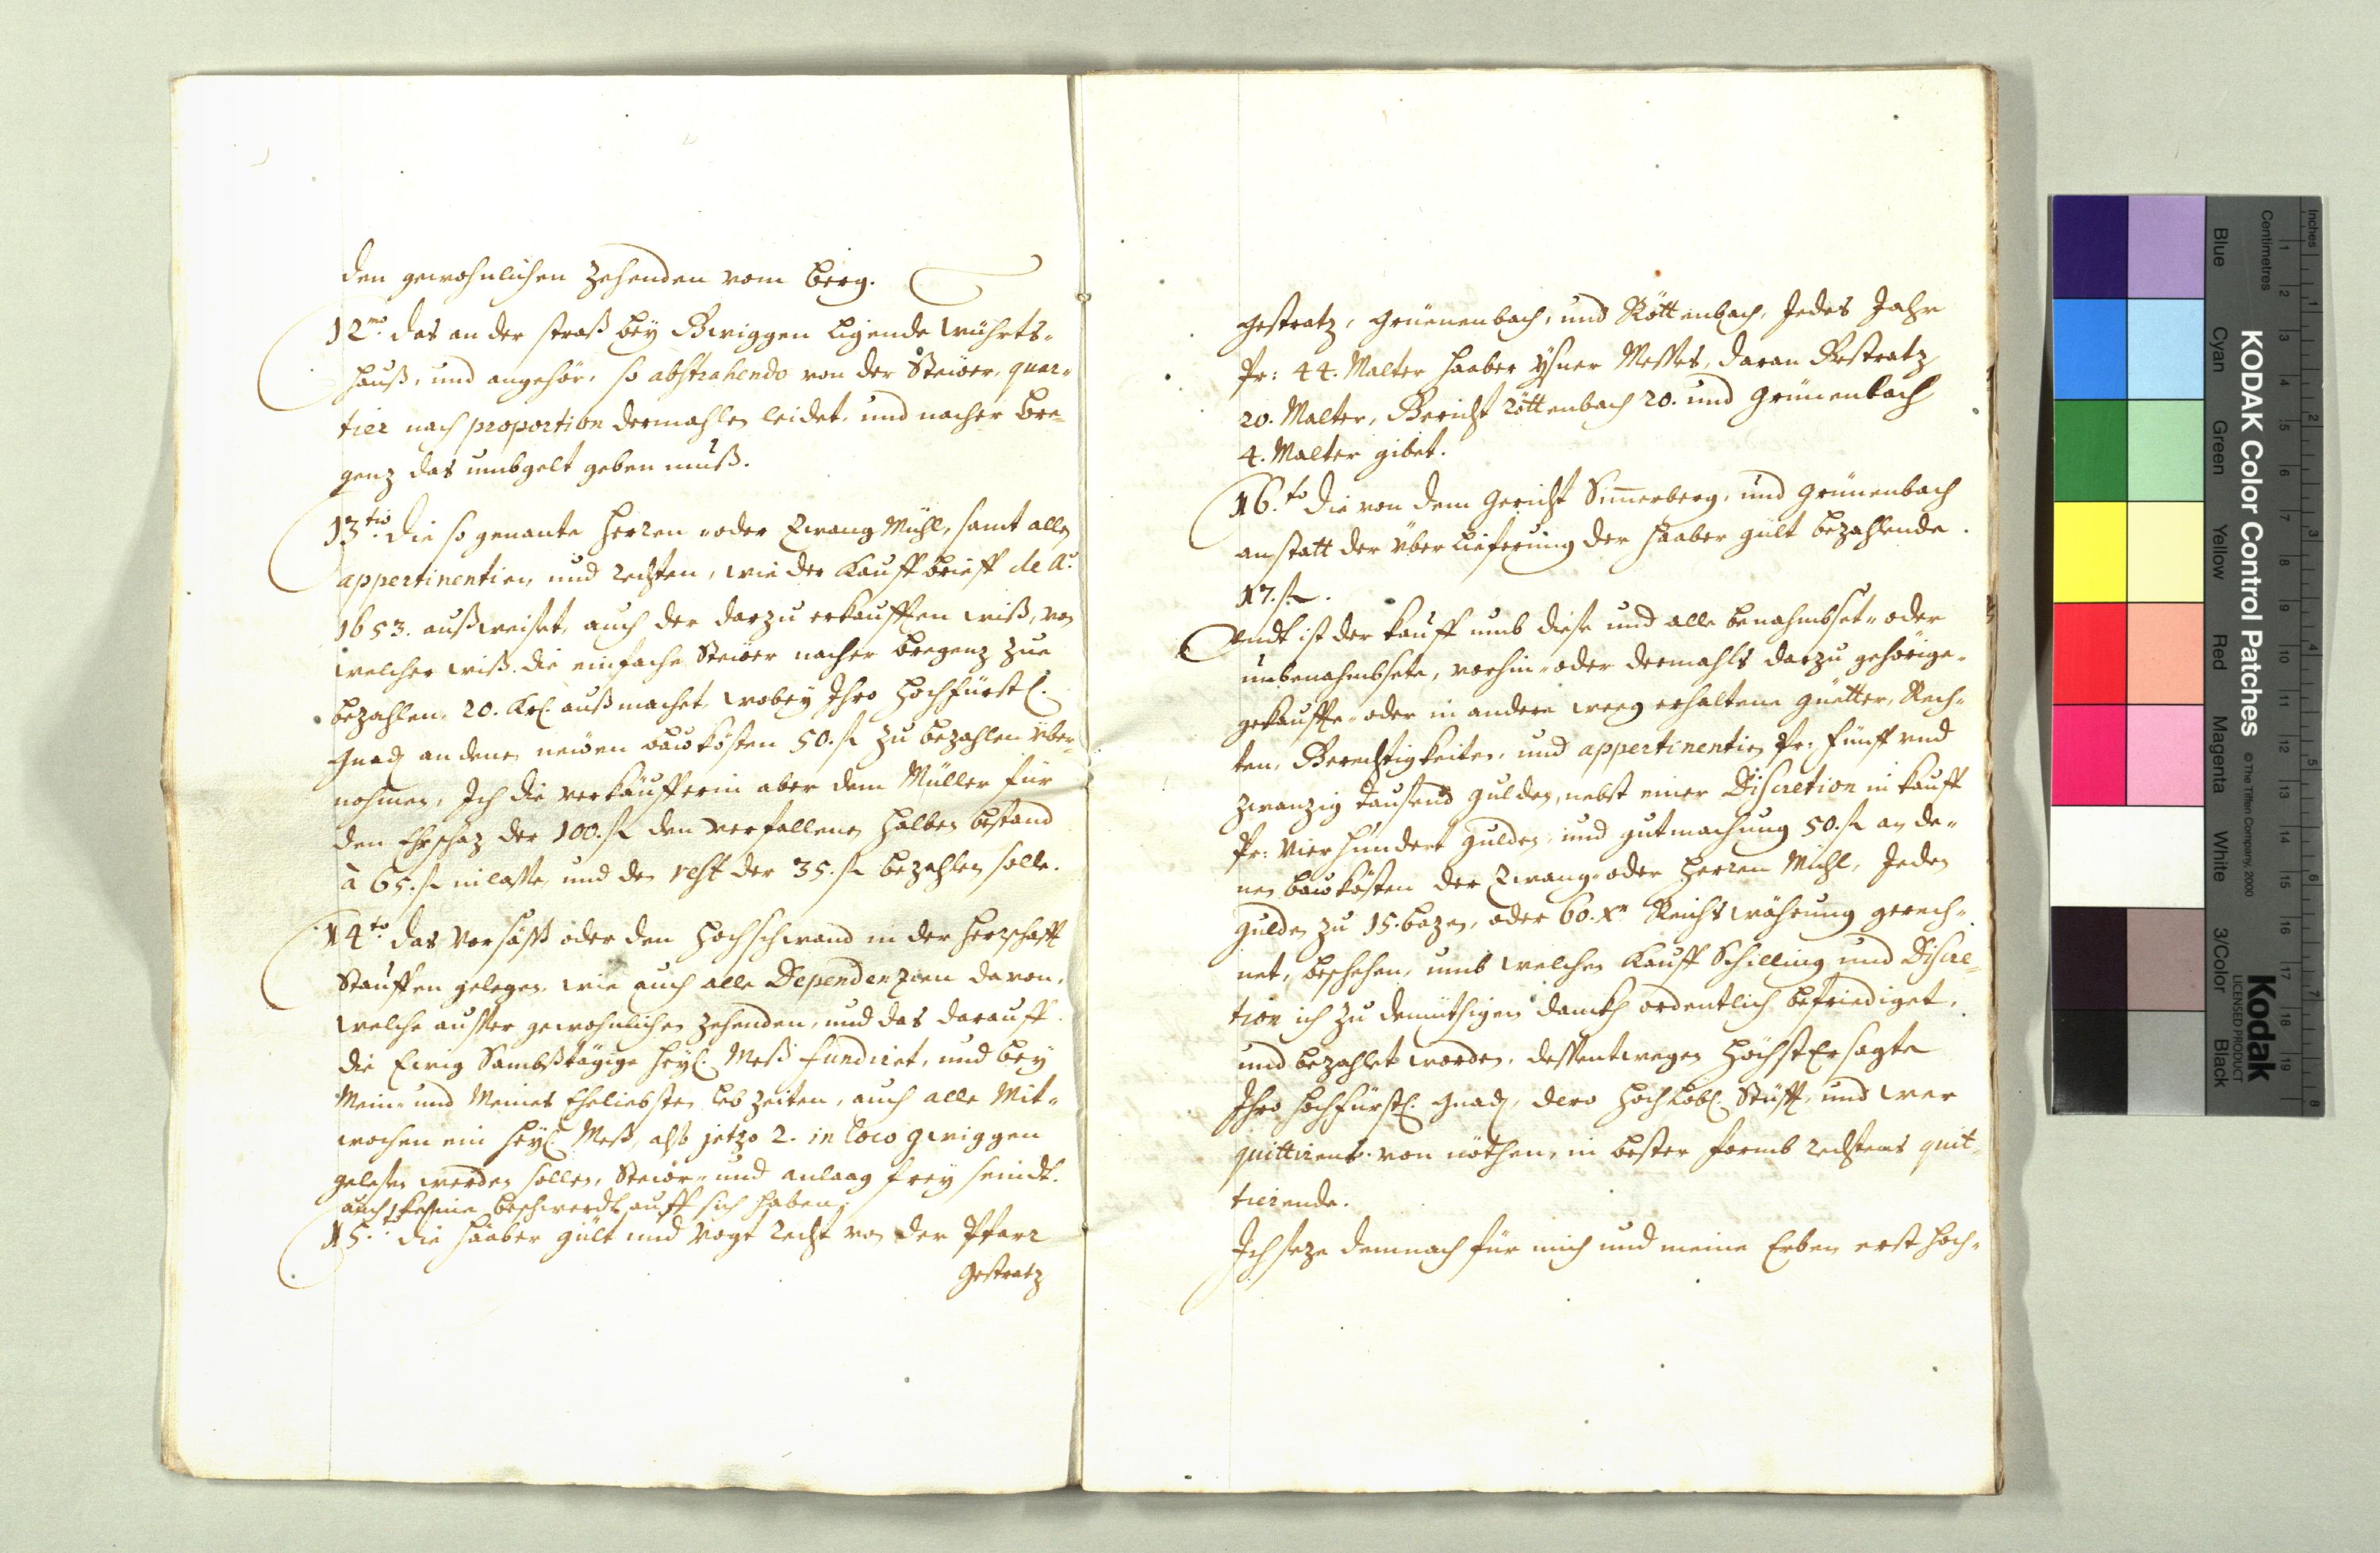 den gewohnlichen Zehenden vom berg.
12mo. das an der straß bey Gwiggen ligende Würths-
hauß, und angehör, so abstrahendo von der Steüer, quar-
tier nach proportion dermahlen leidet, und nacher Bre-
genz das umbgelt geben muß.
13tio. die so genante Herren- oder Zwang Mühl, samt allen
appertinentien, und rechten, wie der Kauffbrieff de Ao.
1653. außweiset, auch der darzu erkaufften wiß, von
welcher wiß die einfache Steüer nacher Bregenz zue
bezahlen, 20. Krl. außmachet, wobey Ihro Hochfürstl.
Gnad. an denen neüen baw kösten 50. fl. zu bezahlen über-
nohmen, Ich die verkäufferin aber dem Müller für
den Ehrschaz der 100. fl. den verfallenen halben bestand
à 65. fl. nilasse, und den rest der 35. fl. bezahlen solle.
14to. das Vorsäß oder den Hochschwand in der Herrschafft
Stauffen gelegen, wie auch alle Dependenzien davon,
welche ausser gewohnlichen Zehenden, und das darauff
die Ewig Sambßtägige Heyl. Meß fundiret, und bey
Mein- und Meines Eheliebsten lebzeiten, auch alle Mit-
wochen ein Heyl. Meß, alß jetzo 2. in loco Gwiggen
gelesen werden sollen, Steüer- und anlaag frey seindt.
auch keine beschwerdt auff sich haben.
15to. die Haaber gült und Vogt recht von der Pfarr
Gestratz
Gestratz, Grüenenbach, und Röttenbach, Jedes Jahr
Pr: 44. Malter Haaber Ysner Messes, daran Gestratz
20. Malter, Gericht Röttenbach 20. und Grünenbach
4. Malter gibet.
16to. die von dem Gericht Simerberg, und Grünenbach
anstatt der Überlieferung der Haaber gült bezahlende
17. fl.
Undt ist der kauff umb diese und alle benahmbset- oder
unbenahmbsete, vorhin- oder dermahls darzu gehörige-
gekauffte- oder in andere weeg erhaltene Güetter, Rech-
ten, Gerechtigkeiten, und appertinentien Pr: Fünff und
zwanzig tausend gulden, nebst einer Discretion in kauff
Pr: Vierhundert gulden, und gutmachung 50. fl. an de-
nen bawkösten der Zwang- oder Herren Mühl, Jeden
gulden zu 15. bazen, oder 60. xr. Reichs währung gerech-
net, beschehen, umb welchen Kauff Schilling und Discre-
tion ich zu demüthigen danckh ordentlich befriediget,
und bezahlet worden, dessentwegen Höchst Ersagte
Ihro Hochfürstl. Gnad, dero Hochlobl. Stüfft, und wer
quittierens von nöthen, in bester formb rechtens quit-
tierende.
Ich seze demnach für mich und meine Erben erst hoch-
KODAK Color Control Patches
© The Tiffen Company, 2000
Kodak
LICENSED PRODUCT
Inches
Centimetres
Blue
Cyan
Green
Yellow
Red
Magenta
White
3/Color
Black